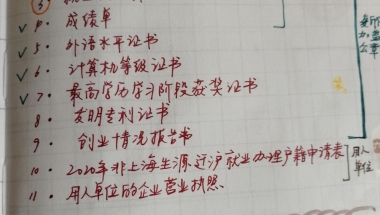 ✓ 4. 成绩单
✓ 5. 外语水平证书
✓ 6. 计算机等级证书
✓ 7. 最高学历学习阶段获奖证书
8. 发明专利证书
9. 创业情况报告书
10. 2020年非上海生源迁沪就业办理户籍申请表
11. 用人单位的企业营业执照.
用人
单位